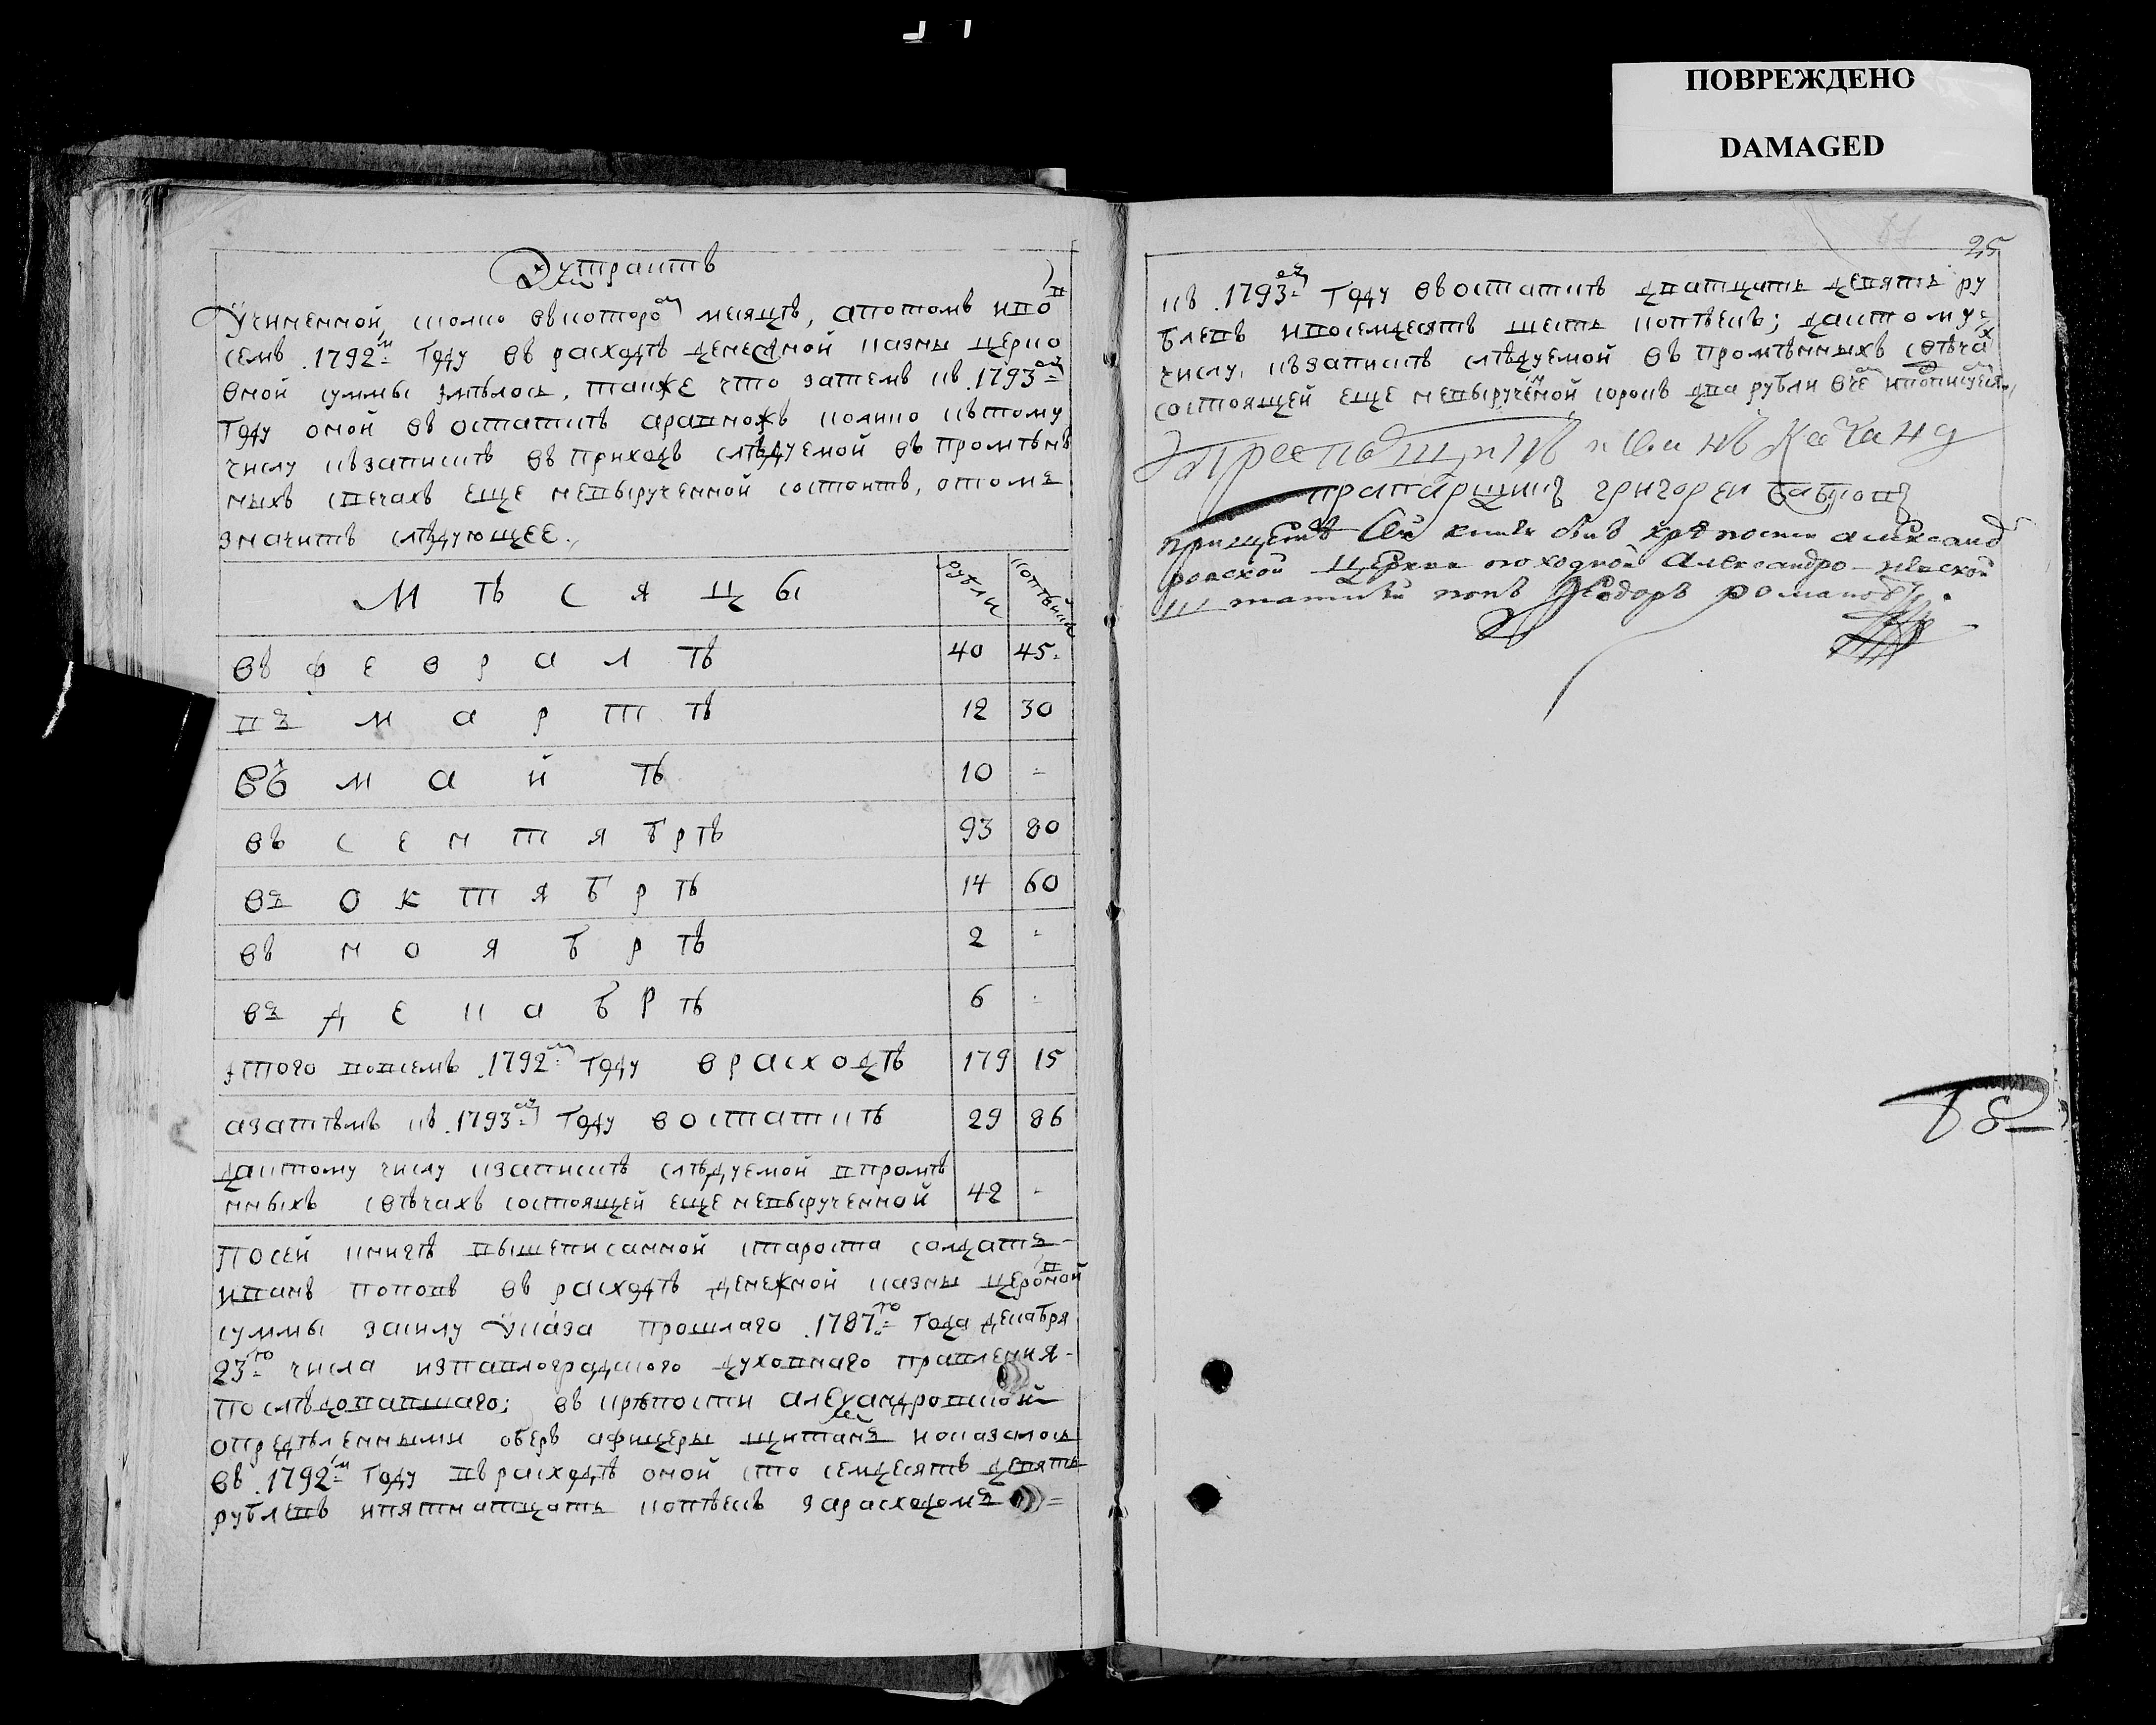 ПОВРЕЖДЕНО
DAMAGED
Экстрактъ
Учиненной, колко въ которо^м месяцѣ, а потомъ и по в
семъ 1792^м году въ расходѣ денежной казны церко
вной суммы имѣлось, также что затемъ къ 1793^му
году оной въ остаткѣ а равножъ колико къ тому
числу къ запискѣ въ приходъ слѣдуемой въ промѣнѣ
ныхъ свечахъ еще невырученной состоитъ, о томъ
значитъ слѣдующее.
Мѣсяцы
рубли
копѣйки
въ февралѣ 40 45
въ мартѣ 12 30
въ майѣ 10 -
въ сентябрѣ 93 80
въ октябрѣ 14 60
въ ноябрѣ 2 -
въ декабрѣ 6 -
итого во всемъ 1792^м году в расходѣ 179 15
а затѣмъ къ 1793^му году в остаткѣ 29 86
да ктому числу к запискѣ слѣдуемой в промѣ
нныхъ свѣчахъ состоящей еще невырученной 42 -
По сей книгѣ вышеписанной староста солдатъ
Иванъ Поповъ въ расходѣ денежной казны церко^вной
суммы за силу Указа прошлаго 1787^го года декабря
23^го числа из павлоградского духовнаго правления
послѣдовавшаго; въ крѣпости александровской
опредѣленными оберъ афицеры щитанъ и оказалось
въ 1792^м году въ расходѣ оной сто семдесятъ девять
рублевъ и пятнатцать копѣекъ за расходомъ
25
къ 1793^му году въ остаткѣ дватцать девять ру
блевъ и восемдесятъ шесть копѣекъ; да к тому
числу, къ запискѣ слѣдуемой въ промѣнныхъ свѣча^х
состоящей еще невырученной сорокъ два рубли в че^м и подпису^емся
прапарщикъ григорей
при щетѣ сей книги былъ крѣпости александ
ровской церкви походной Александро-невской
штатный попъ Феодоръ романовъ